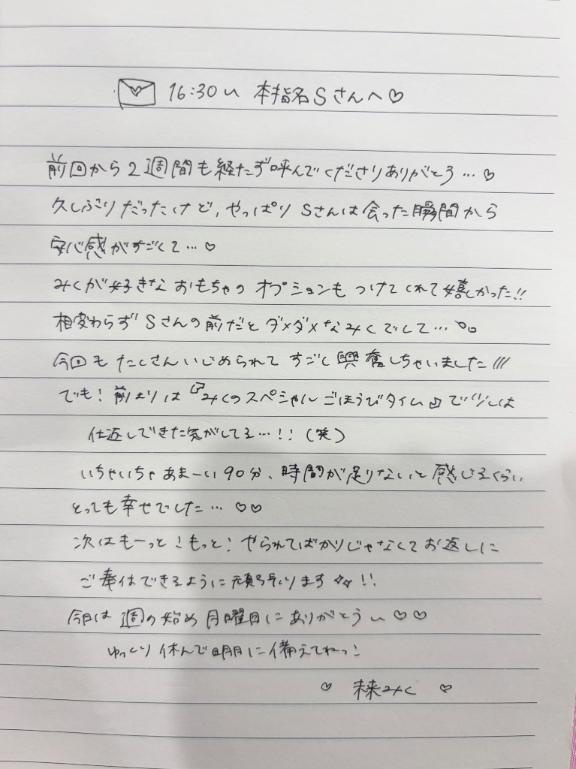 16:30〜 本指名Sさんへ♡
前回から2週間も経たず呼んでくださりありがとう…♡
久しぶりだったけど、やっぱりSさんは会った瞬間から
安心感がすごくて…♡
みくが好きなおもちゃのオプションもつけてくれて嬉しかった!!
相変わらずSさんの前だとダメダメなみくでして…
今回もたくさんいじめられてすごく興奮しちゃいました///
でも!前よりは『みくのスペシャルごほうびタイム』で少しは
仕返しできた気がしてる…!!(笑)
いちゃいちゃあまーい90分、時間が足りないと感じるくらい
とっても幸せでした…♡♡
次はもーっと!もっと!やられてばかりじゃなくてお返しに
ご奉仕できるように頑張ります☆☆!!
今日は週の始め月曜日にありがとう〜♡♡
ゆっくり休んで明日に備えてねっ!
♡ 未来みく ♡